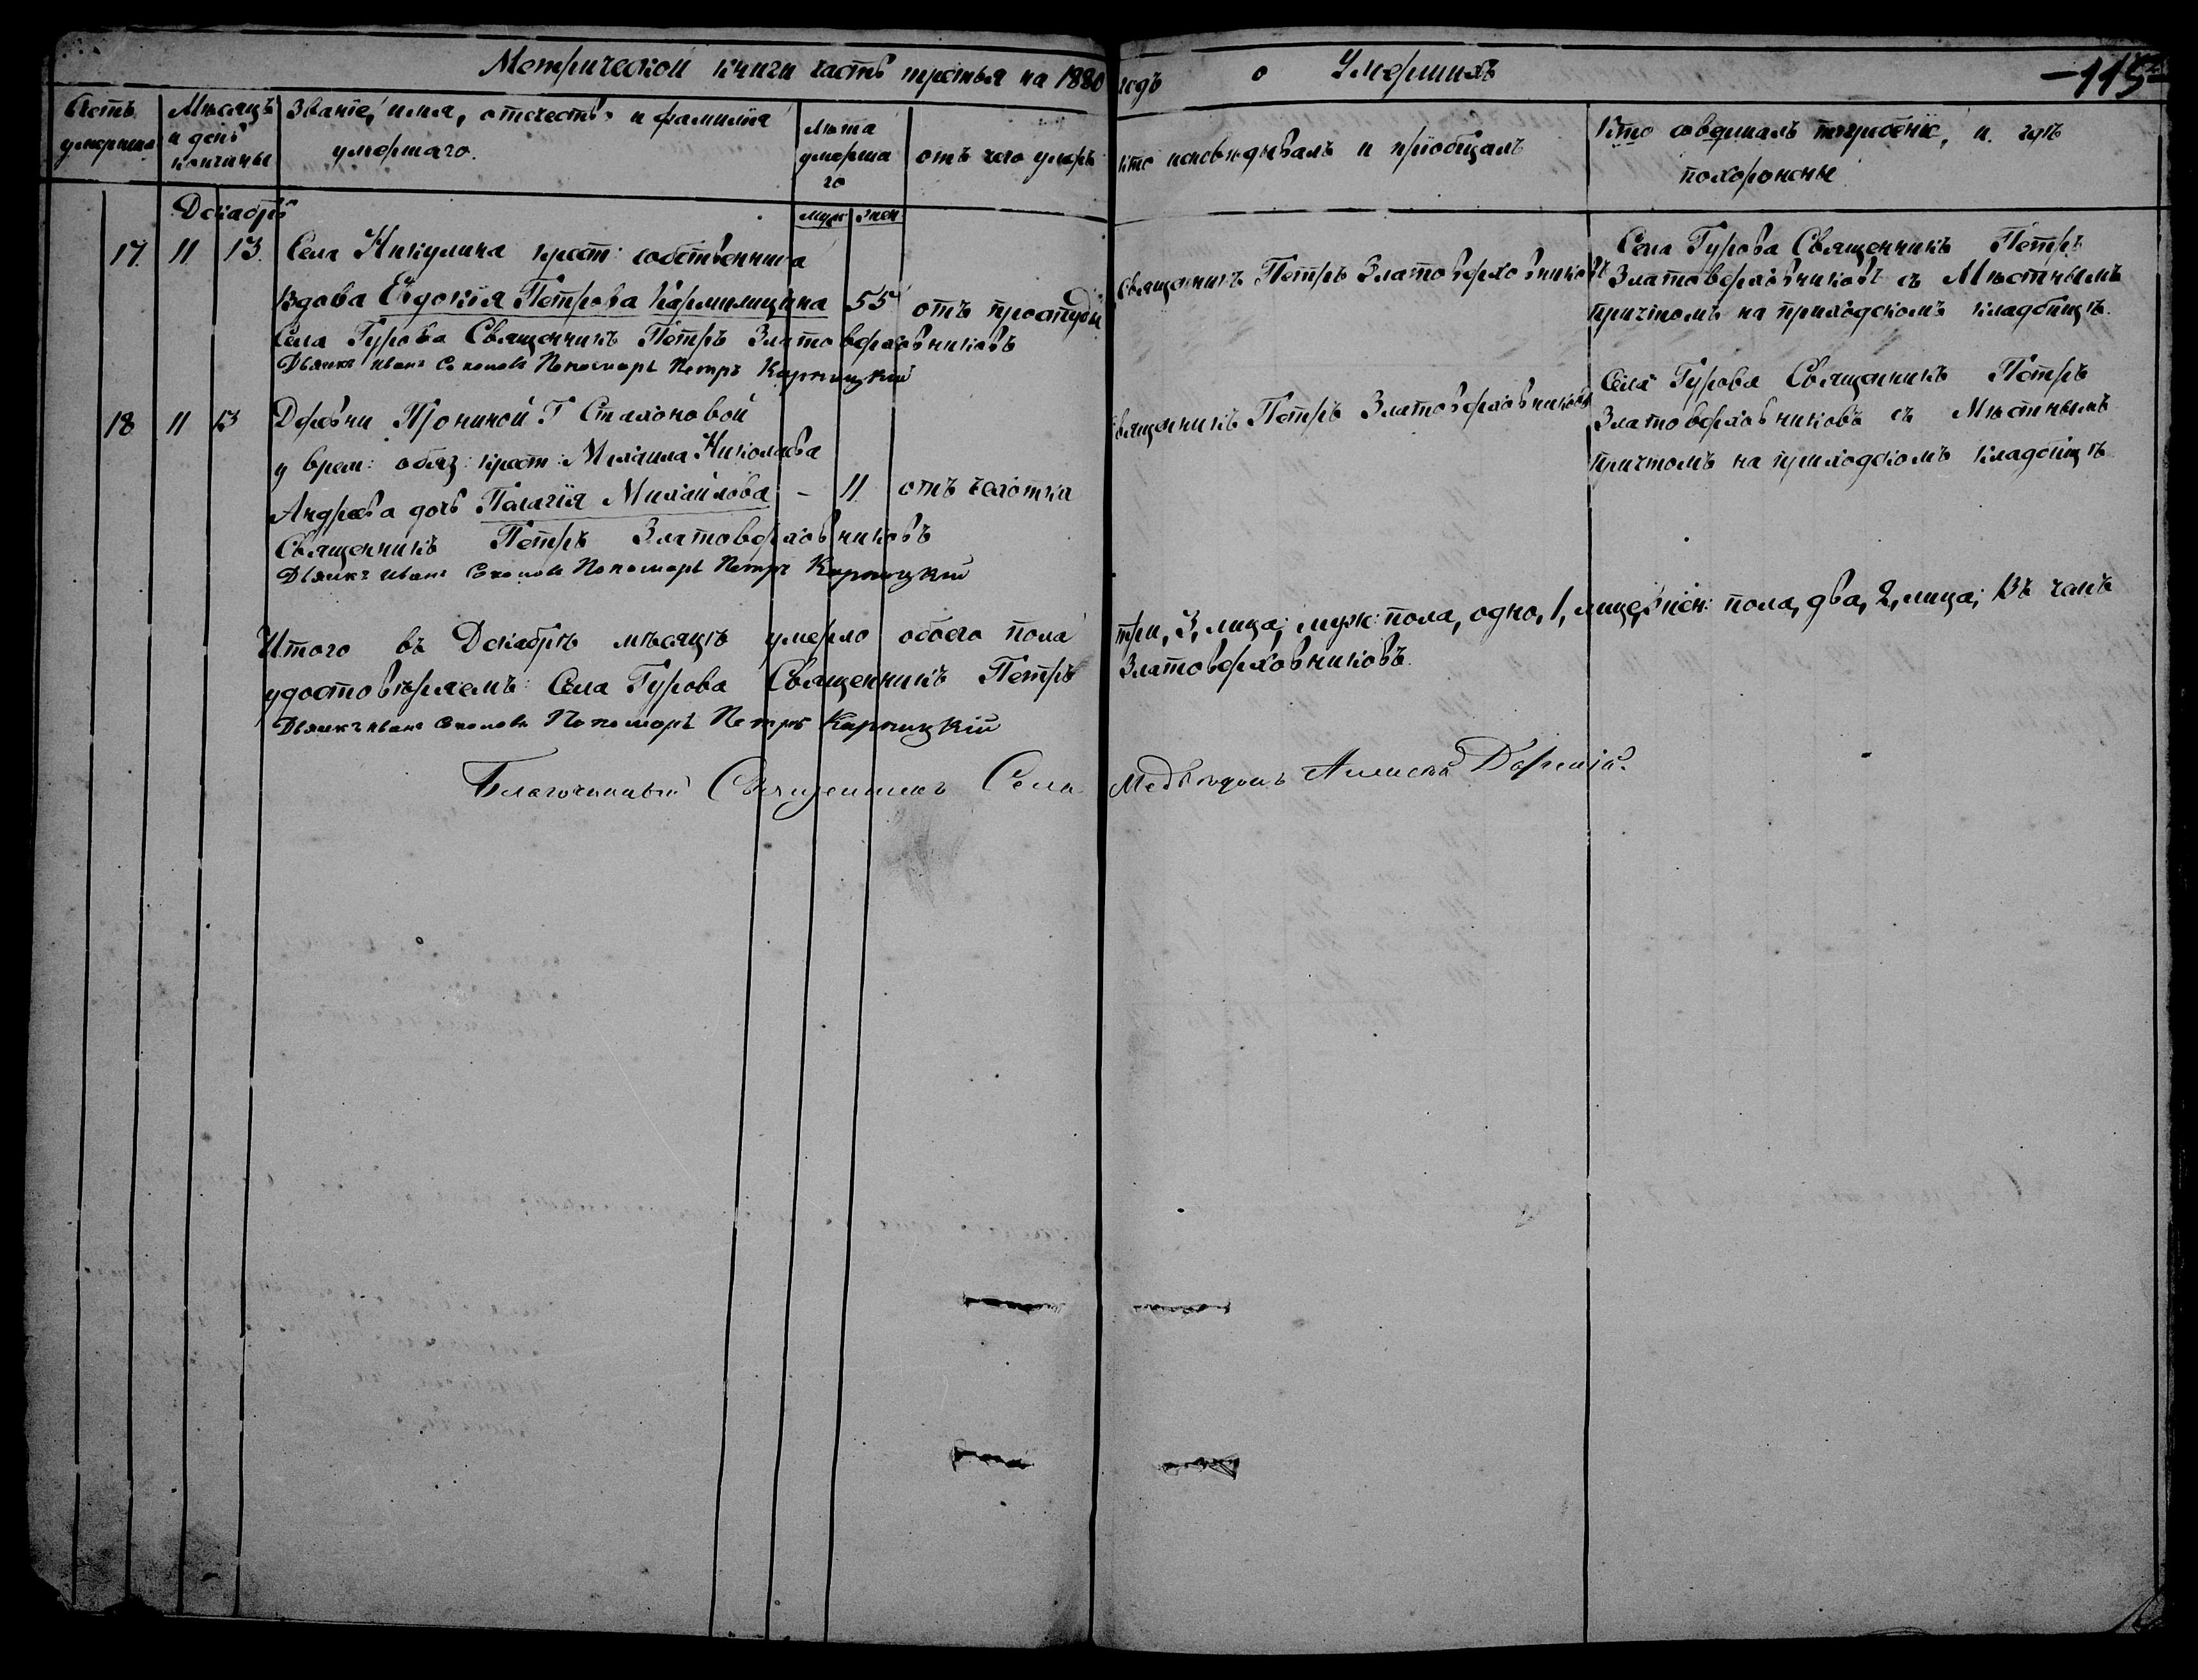 Метрической книги часть третья на 1880 годъ о Умершихъ
-115-
Счетъ умершихъ
Мѣсяцъ и день кончины
Званіе, имя, отчество и фамилія умершаго.
Лѣта умершаго
муж жен
отъ чего умеръ
кто исповѣдывалъ и пріобщалъ
Кто совершалъ погребеніе, и гдѣ похоронены
Декабрь
17. 11 13. Села Никулина крест: собственника
вдова Евдокія Петрова 55 отъ простуды
Священникъ Петръ Златоверховниковъ
Села Гурова Священникъ Петръ
Златоверховниковъ съ Мѣстнымъ
причтомъ на приходскомъ кладбищѣ.
Села Гурова Священникъ Петръ Златоверховниковъ
Дьячкъ Иванъ Соколовъ Пономарь Петръ Карницкій
18 11 13 Деревни Прониной Г Стахоновой
у врем: обяз: крест: Михаила Николаева
Андреева дочь Пелагія Михайлова - 11 отъ чахотки
Священникъ Петръ Златоверховниковъ
Села Гурова Священникъ Петръ
Златоверховниковъ съ Мѣстнымъ
причтомъ на приходскомъ кладбищѣ
Священникъ Петръ Златоверховниковъ
Дьячкъ Иванъ Соколовъ Пономарь Петръ Карницкій
Итого въ Декабрѣ мѣсяцѣ умерло обоего пола три, 3, лица; муж: пола, одно, 1, лице, жен: пола, два, 2, лица; Въ чемъ
удостовѣряемъ: Села Гурова Священникъ Петръ Златоверховниковъ.
Дьячкъ Иванъ Соколовъ Пономарь Петръ Карницкій
Благочинный Священникъ Села Алексѣй